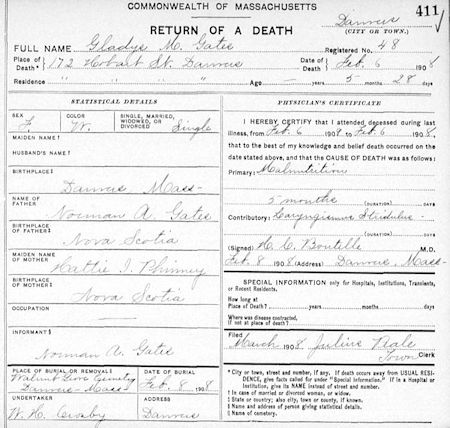 COMMONWEALTH OF MASSACHUSETTS
411
RETURN OF A DEATH
Danvers
(CITY OR TOWN.)
FULL NAME Gladys M. Gates Registered No. 48
Place of Death* 172 Hobart St. Danvers Date of Death Feb. 6 1908
Residence " " " " Age — years 5 months 28 days
STATISTICAL DETAILS
SEX F COLOR W. SINGLE, MARRIED, WIDOWED, OR DIVORCED Single
MAIDEN NAME‡
HUSBAND'S NAME‡
BIRTHPLACE
Danvers Mass-
NAME OF FATHER
Norman A. Gates
BIRTHPLACE OF FATHER§
Nova Scotia
MAIDEN NAME OF MOTHER
Hattie I. Phinney
BIRTHPLACE OF MOTHER§
Nova Scotia
OCCUPATION
INFORMANT
Norman A. Gates
PLACE OF BURIAL OR REMOVAL DATE OF BURIAL
Walnut Grove Cemetery
Danvers - Mass- Feb. 8 1908
UNDERTAKER ADDRESS
W. H. Crosby Danvers
PHYSICIAN'S CERTIFICATE
I HEREBY CERTIFY that I attended deceased during last
illness, from Feb. 6 1908 to Feb. 6 1908,
that to the best of my knowledge and belief death occurred on the
date stated above, and that the CAUSE OF DEATH was as follows:
Primary: Malnutrition
5 months (DURATION) DAYS
Contributory: Laryngismus Stridulus -
(DURATION) DAYS
(Signed) H. C. Boutelle M.D.
Feb. 8 1908 (Address) Danvers Mass-
SPECIAL INFORMATION only for Hospitals, Institutions, Transients,
or Recent Residents.
How long at
Place of Death? years months days
Where was disease contracted,
if not at place of death?
Filed
March 1908 Julius Peale
Town Clerk
* City or town, street and number, if any. If death occurs away from USUAL RESI-
DENCE, give facts called for under "Special Information." If in a Hospital or
Institution, give its NAME instead of street and number.
‡ In case of married or divorced woman, or widow.
§ State or country; also city, town or county, if known.
Name and address of person giving statistical details.
Name of cemetery.